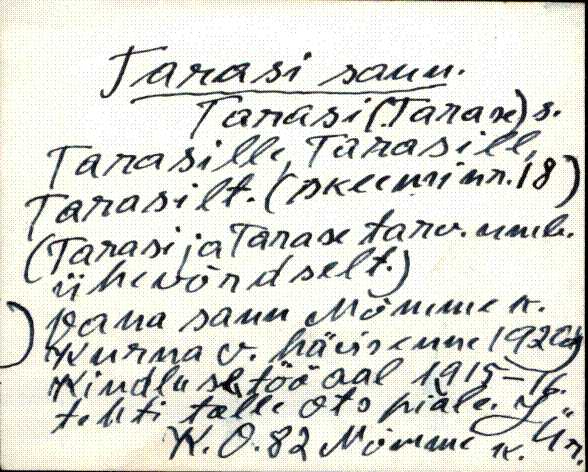 Tarasi saun.
Tarasi (Tarase) s.
Tarasille, Tarasill,
Tarasilt. (skeemi nr. 18)
(Tarasi ja Tarase tarv. umb.
ühevõrdselt.)
Vana saun Nõmme k.
Kurna v. hävisenne 192
Kindluse töö aal 1915-16.
tehti talle ots piale.
K. O. 82 Nõmme k.